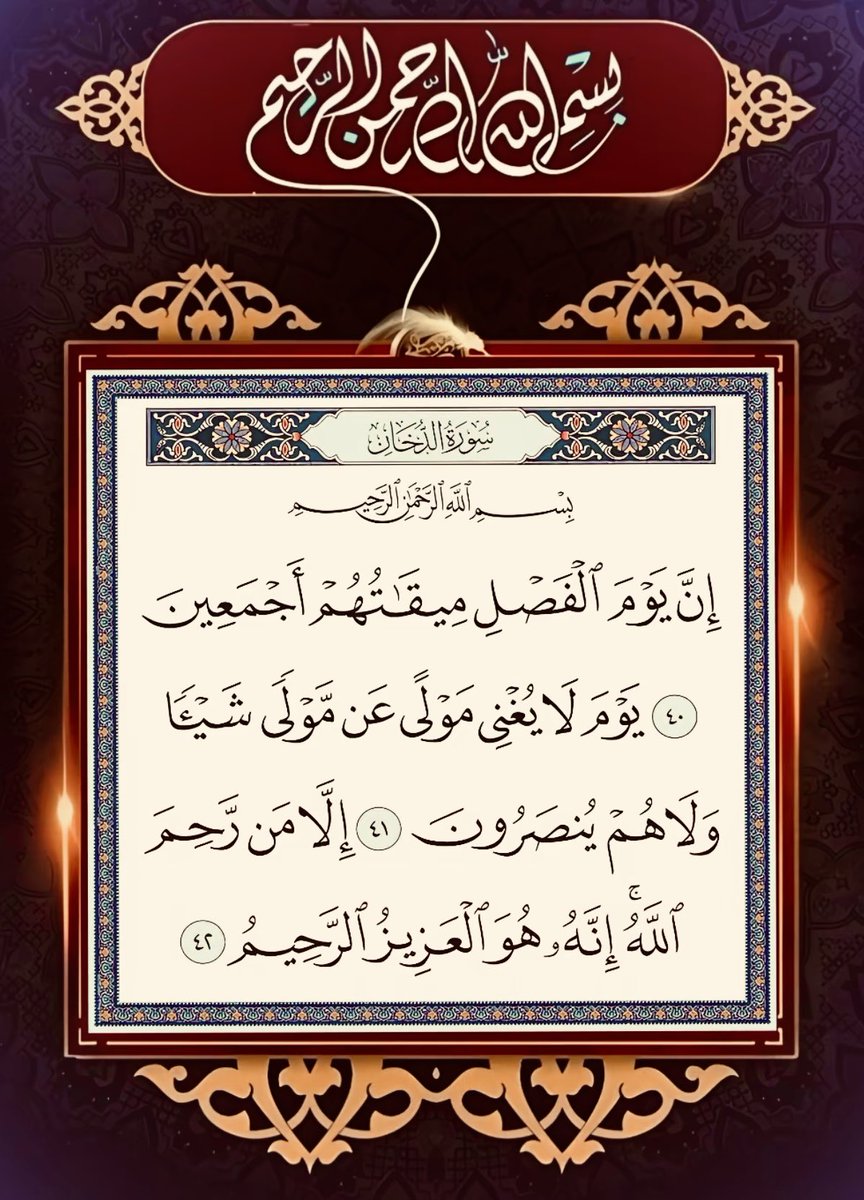 بِسْمِ اللهِ الرَّحْمنِ الرَّحِيمِ
سُورَةُ الدُّخَانِ
بِسْمِ ٱللَّهِ ٱلرَّحْمَٰنِ ٱلرَّحِيمِ
إِنَّ يَوْمَ ٱلْفَصْلِ مِيقَٰتُهُمْ أَجْمَعِينَ
٤٠ يَوْمَ لَا يُغْنِى مَوْلًى عَن مَّوْلًى شَيْـًٔا
وَلَا هُمْ يُنصَرُونَ ٤١ إِلَّا مَن رَّحِمَ
ٱللَّهُ ۚ إِنَّهُۥ هُوَ ٱلْعَزِيزُ ٱلرَّحِيمُ ٤٢